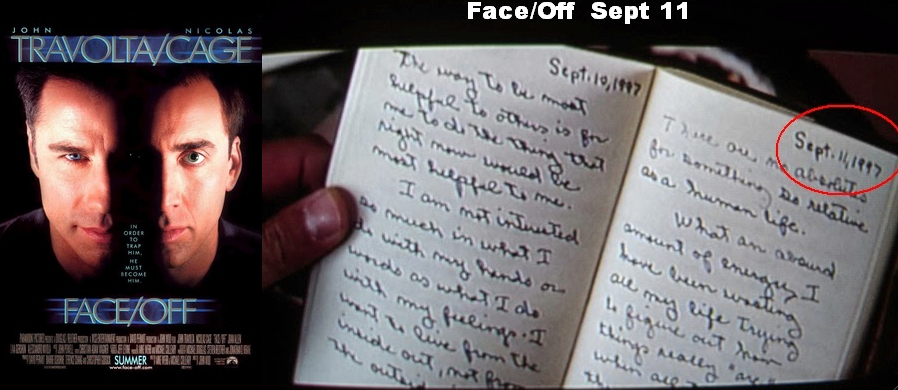 Face/Off Sept 11
JOHN NICOLAS
TRAVOLTA/CAGE
IN
ORDER
TO
TRAP
HIM,
HE
MUST
BECOME
HIM.
FACE/OFF
SUMMER
www.face-off.com
Sept. 10, 1997
The way to be most
helpful to others is for
me to do the thing that
right now would be
most helpful to me.
I am not intrusted
as much in what I
do with my hands or
words as what I do
with my feelings. I
want to live from the
inside out, not from
the outside
Sept. 11, 1997
There are no absolutes
for something so relative
as a human life.
What an absurd
amount of energy I
have been wasting
all my life trying
to figure out how
things really "are"
when all